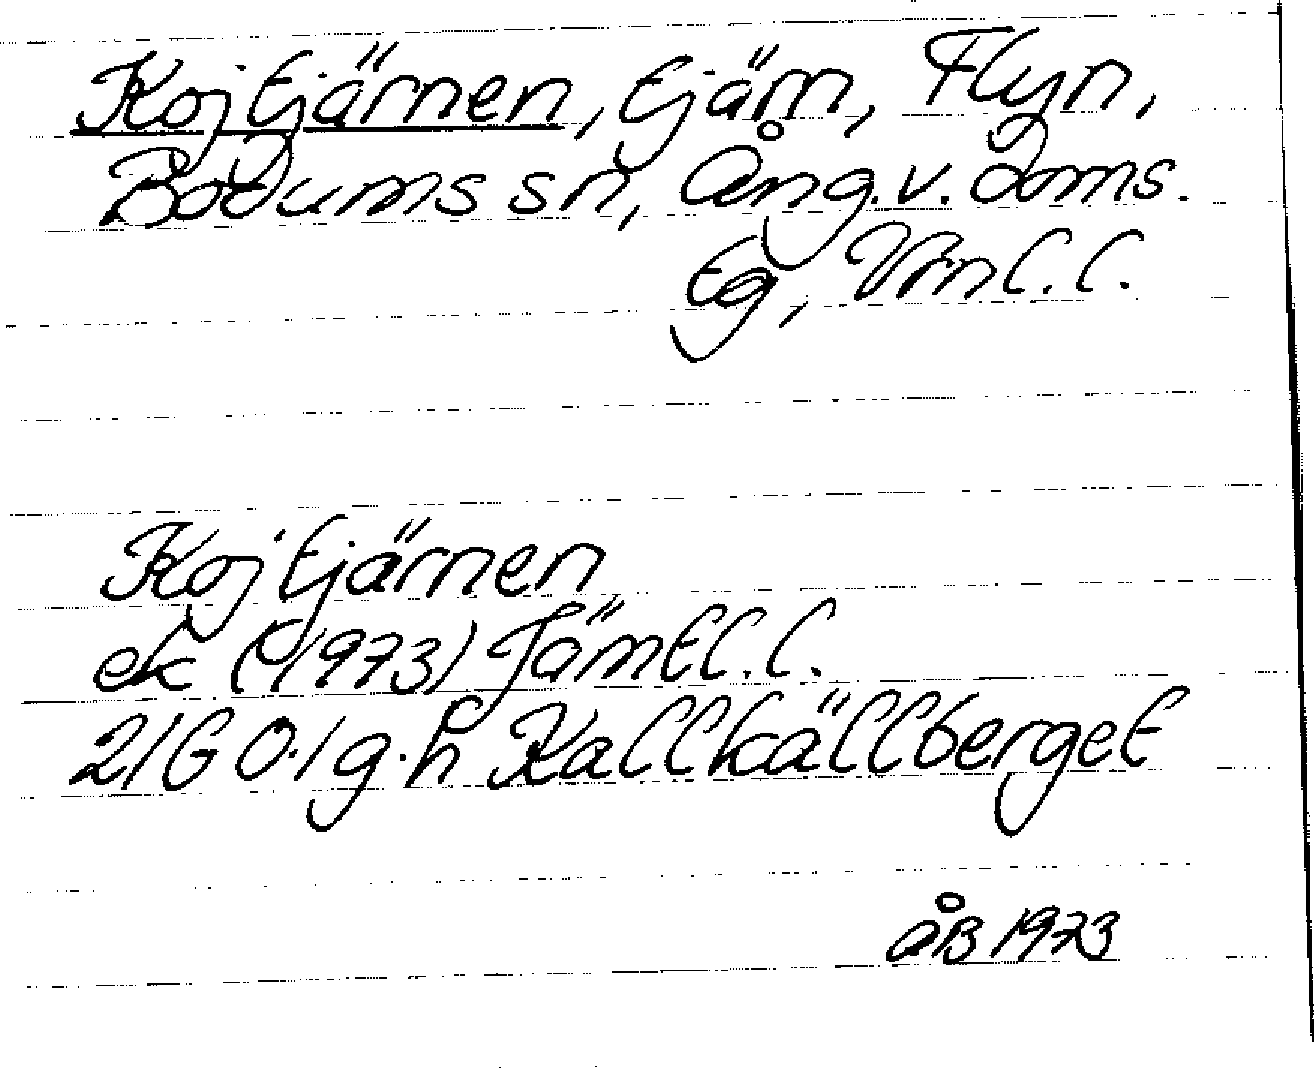 Kojtjärnen, tjärn, Flyn,
Bodums sn, Ång.v. doms.
tg, Vrnl.l.
Kojtjärnen
ek (1973) Jämtl.l.
21G 0-1 g-h Kallkällberget
åB 1973